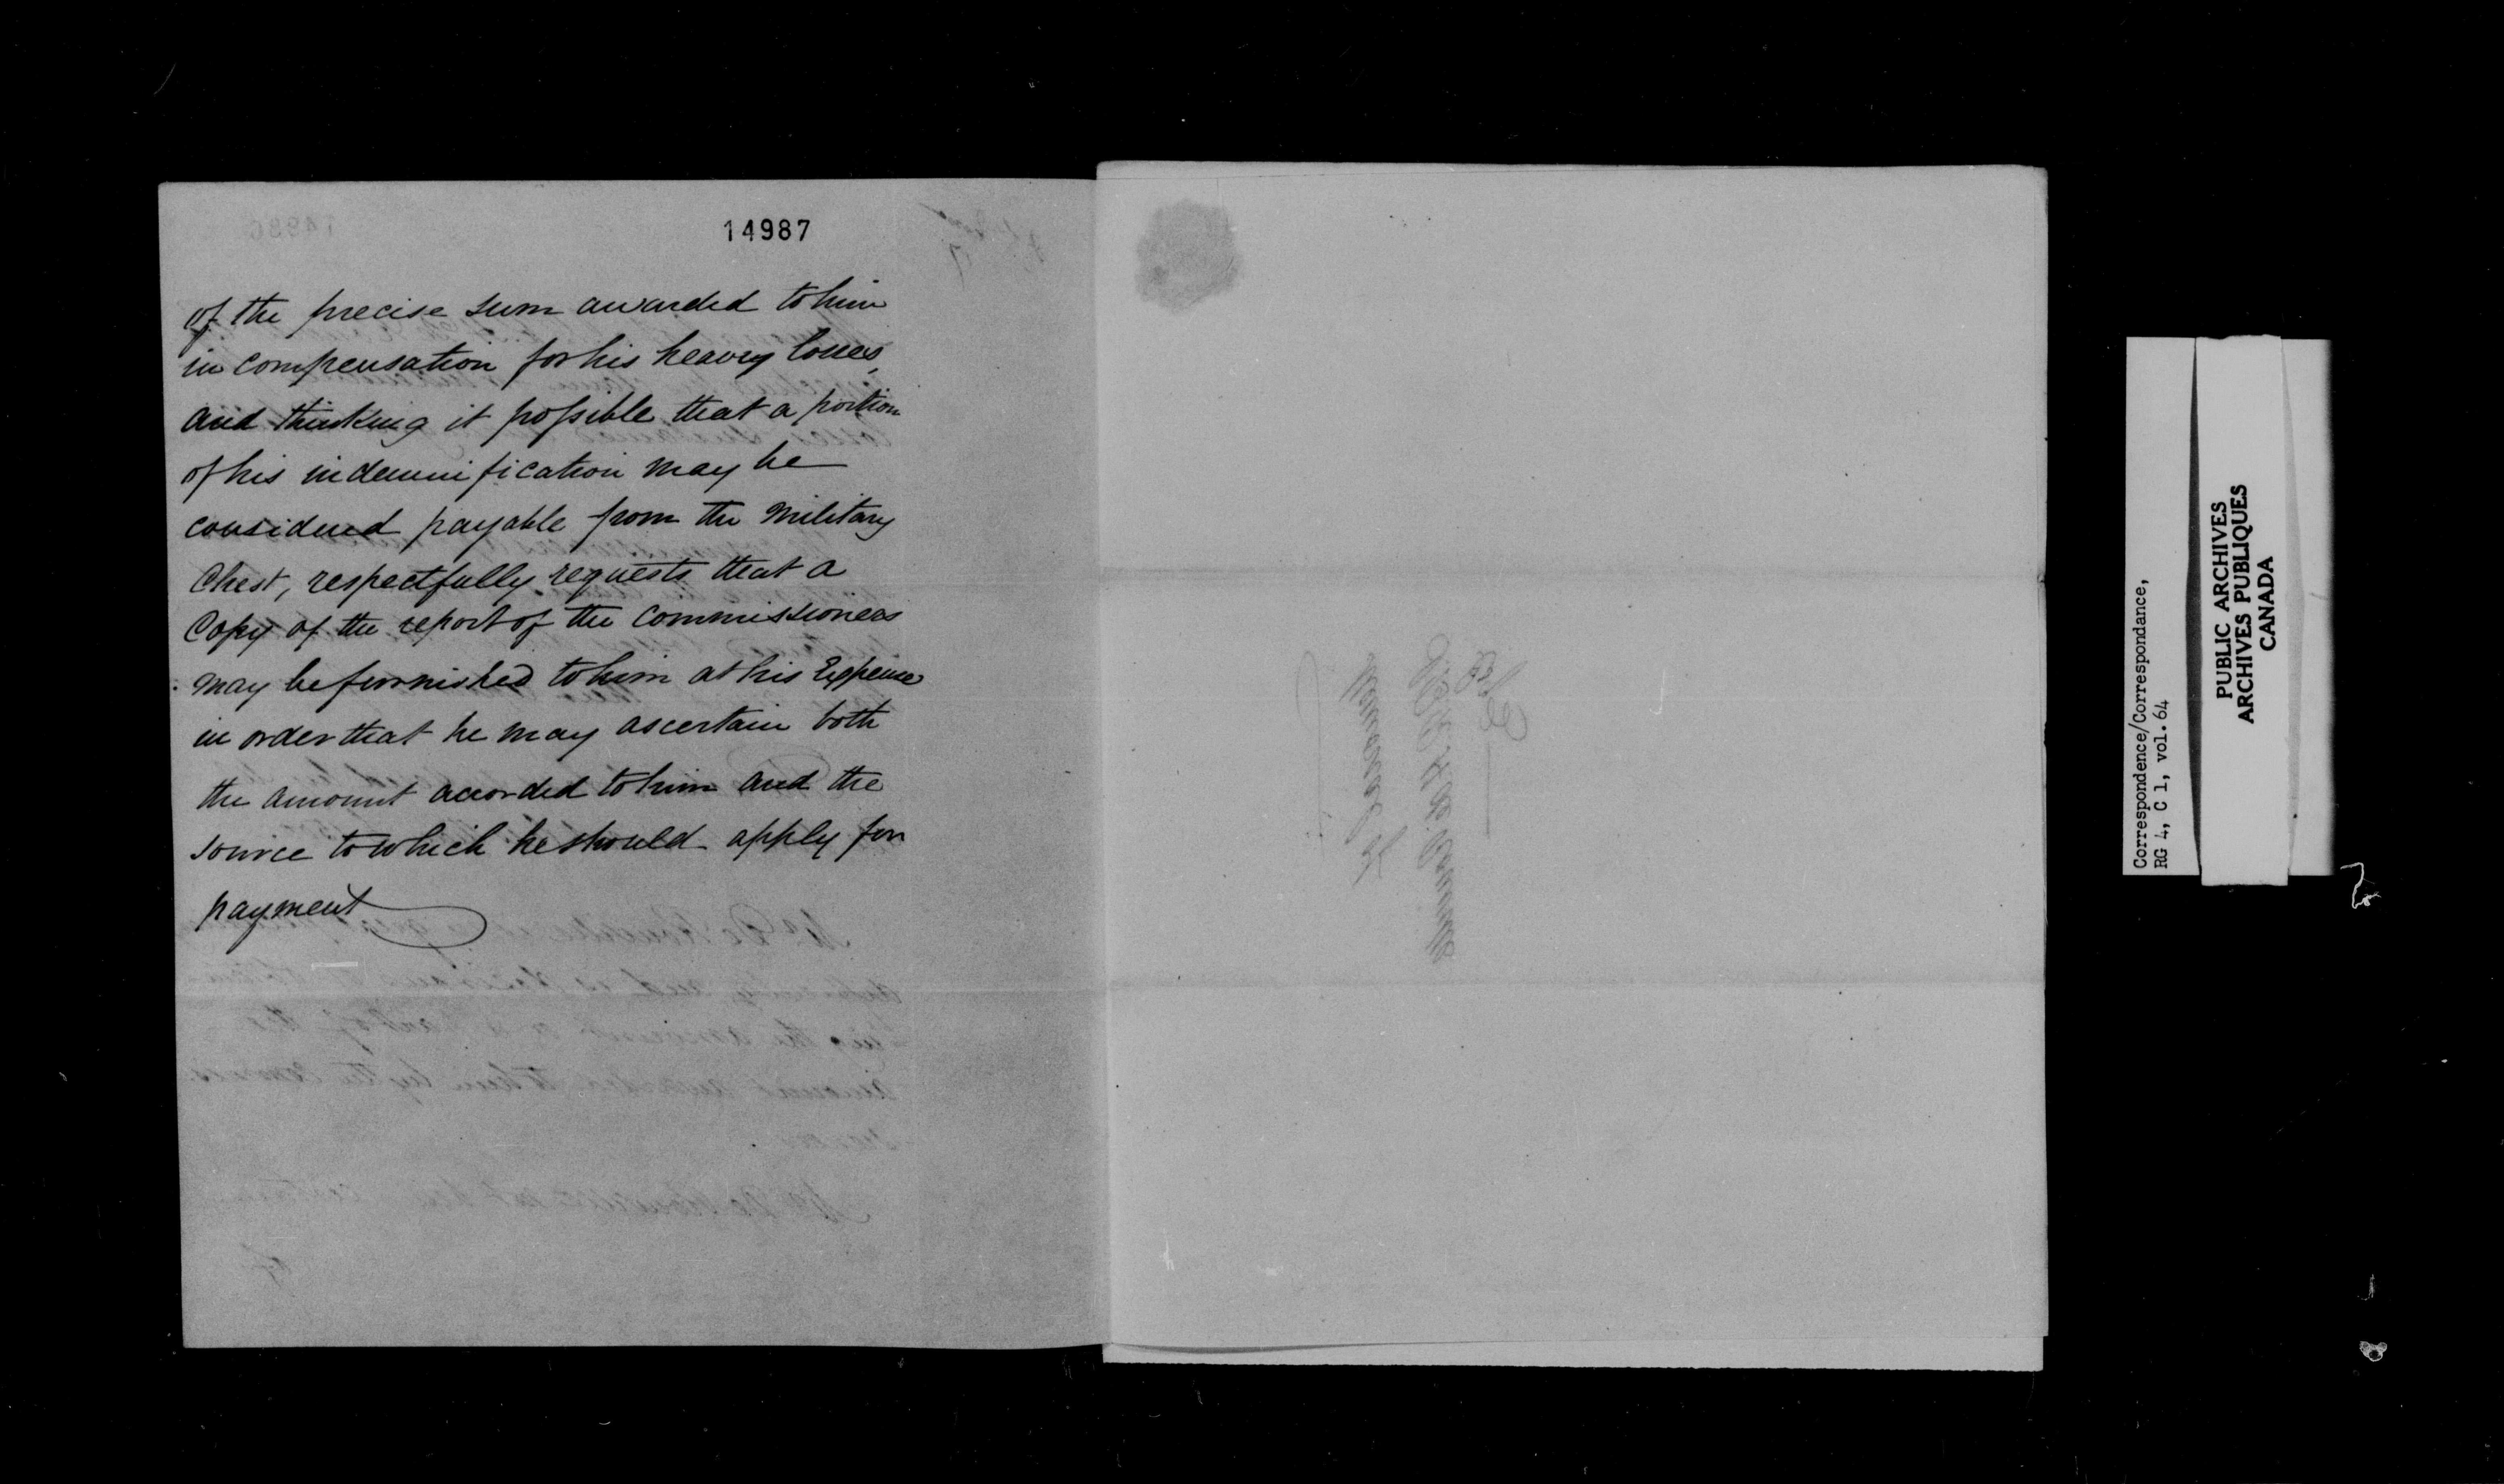 14987
of the precise sum awarded to him
in compensation for his heavy losses,
and thinking it possible that a portion
of his indemnification may be
considered payable from the Military
Chest, respectfully requests that a
Copy of the report of the Commissioners
may be furnished to him at his Expense
in order that he may ascertain both
the amount accorded to him and the
source to which he should apply for
payment
Correspondence/Correspondance,
RG 4, C 1, vol. 64
PUBLIC ARCHIVES
ARCHIVES PUBLIQUES
CANADA